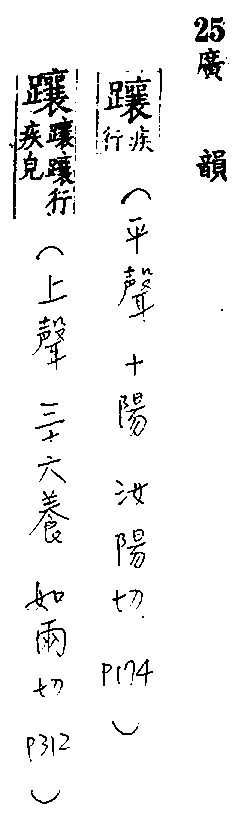 25廣韻
躟疾行（平聲 十陽 汝陽切 P174）
躟躟躟行疾皃（上聲 三十六養 如兩切 P312）